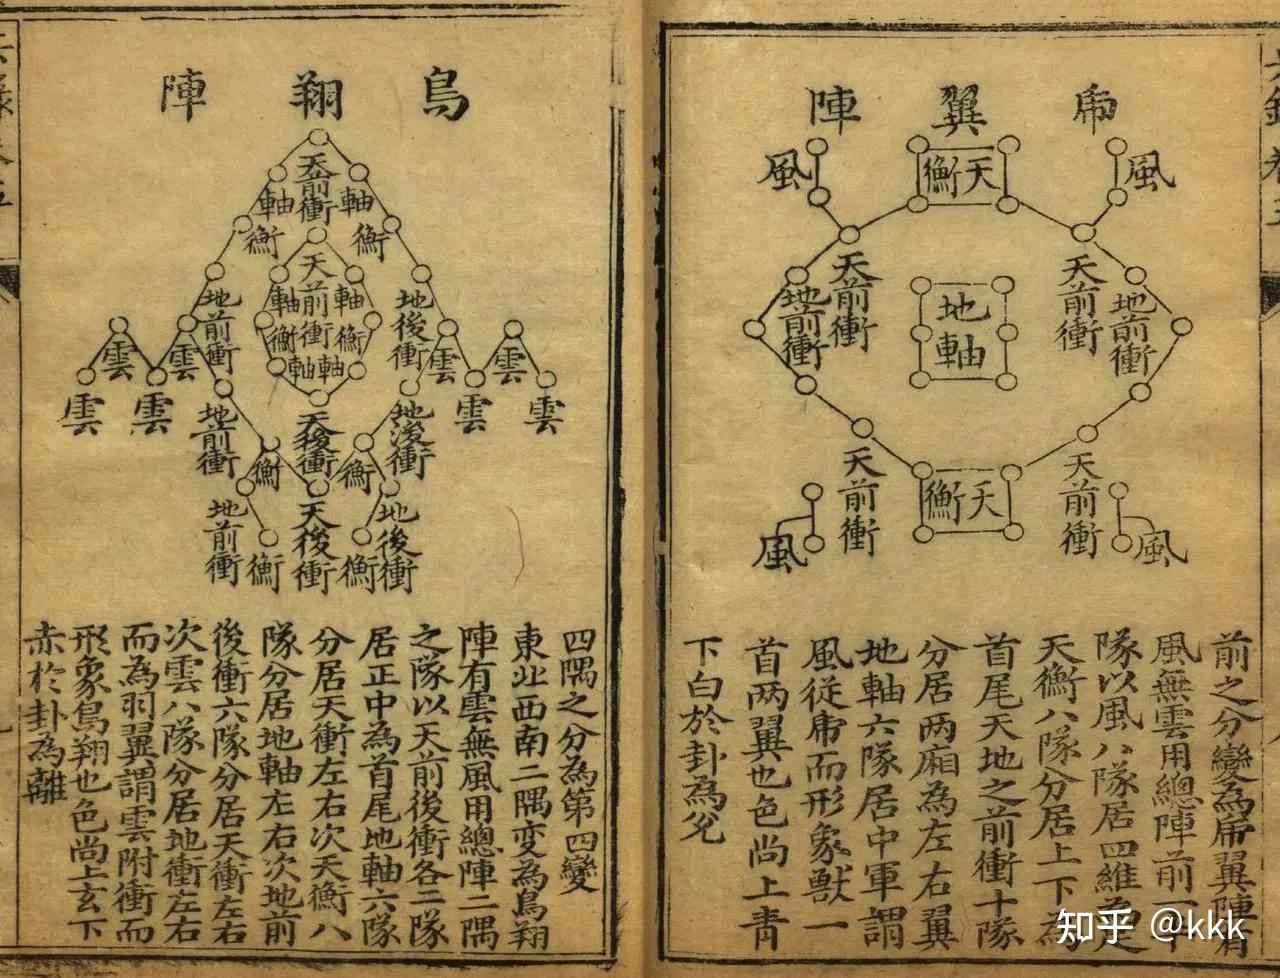 乕翼陣
風
天衡
風
天前衝
地前衝
天前衝
地前衝
地軸
天前衝
天前衝
天衡
風
風
前之分變為乕翼陣有
風無雲用總陣前一
隊以風八隊居四維為足
天衡八隊分居上下為
首尾天地之前衝十隊
分居两廂為左右翼
地軸六隊居中軍謂
風從乕而形象獸一
首两翼也色尚上青
下白於卦為兊
鳥翔陣
天前衝
軸
軸
衡
衡
天前衝
軸
軸
衡
衡
軸
軸
地後衝
地前衝
雲
雲
雲
雲
雲
雲
雲
雲
地後衝
天後衝
地前衝
衡
衡
地後衝
天後衝
地前衝
衡
衡
四隅之分為第四變
東北西南二隅変為鳥翔
陣有雲無風用總陣二隅
之隊以天前後衝各二隊
居正中為首尾地軸六隊
分居天衝左右次天衡八
隊分居地軸左右次地前
後衝六隊分居天衝左右
次雲八隊分居地衝左右
而為羽翼謂雲附衝而
形象鳥翔也色尚上玄下
赤於卦為離
知乎 @kkk